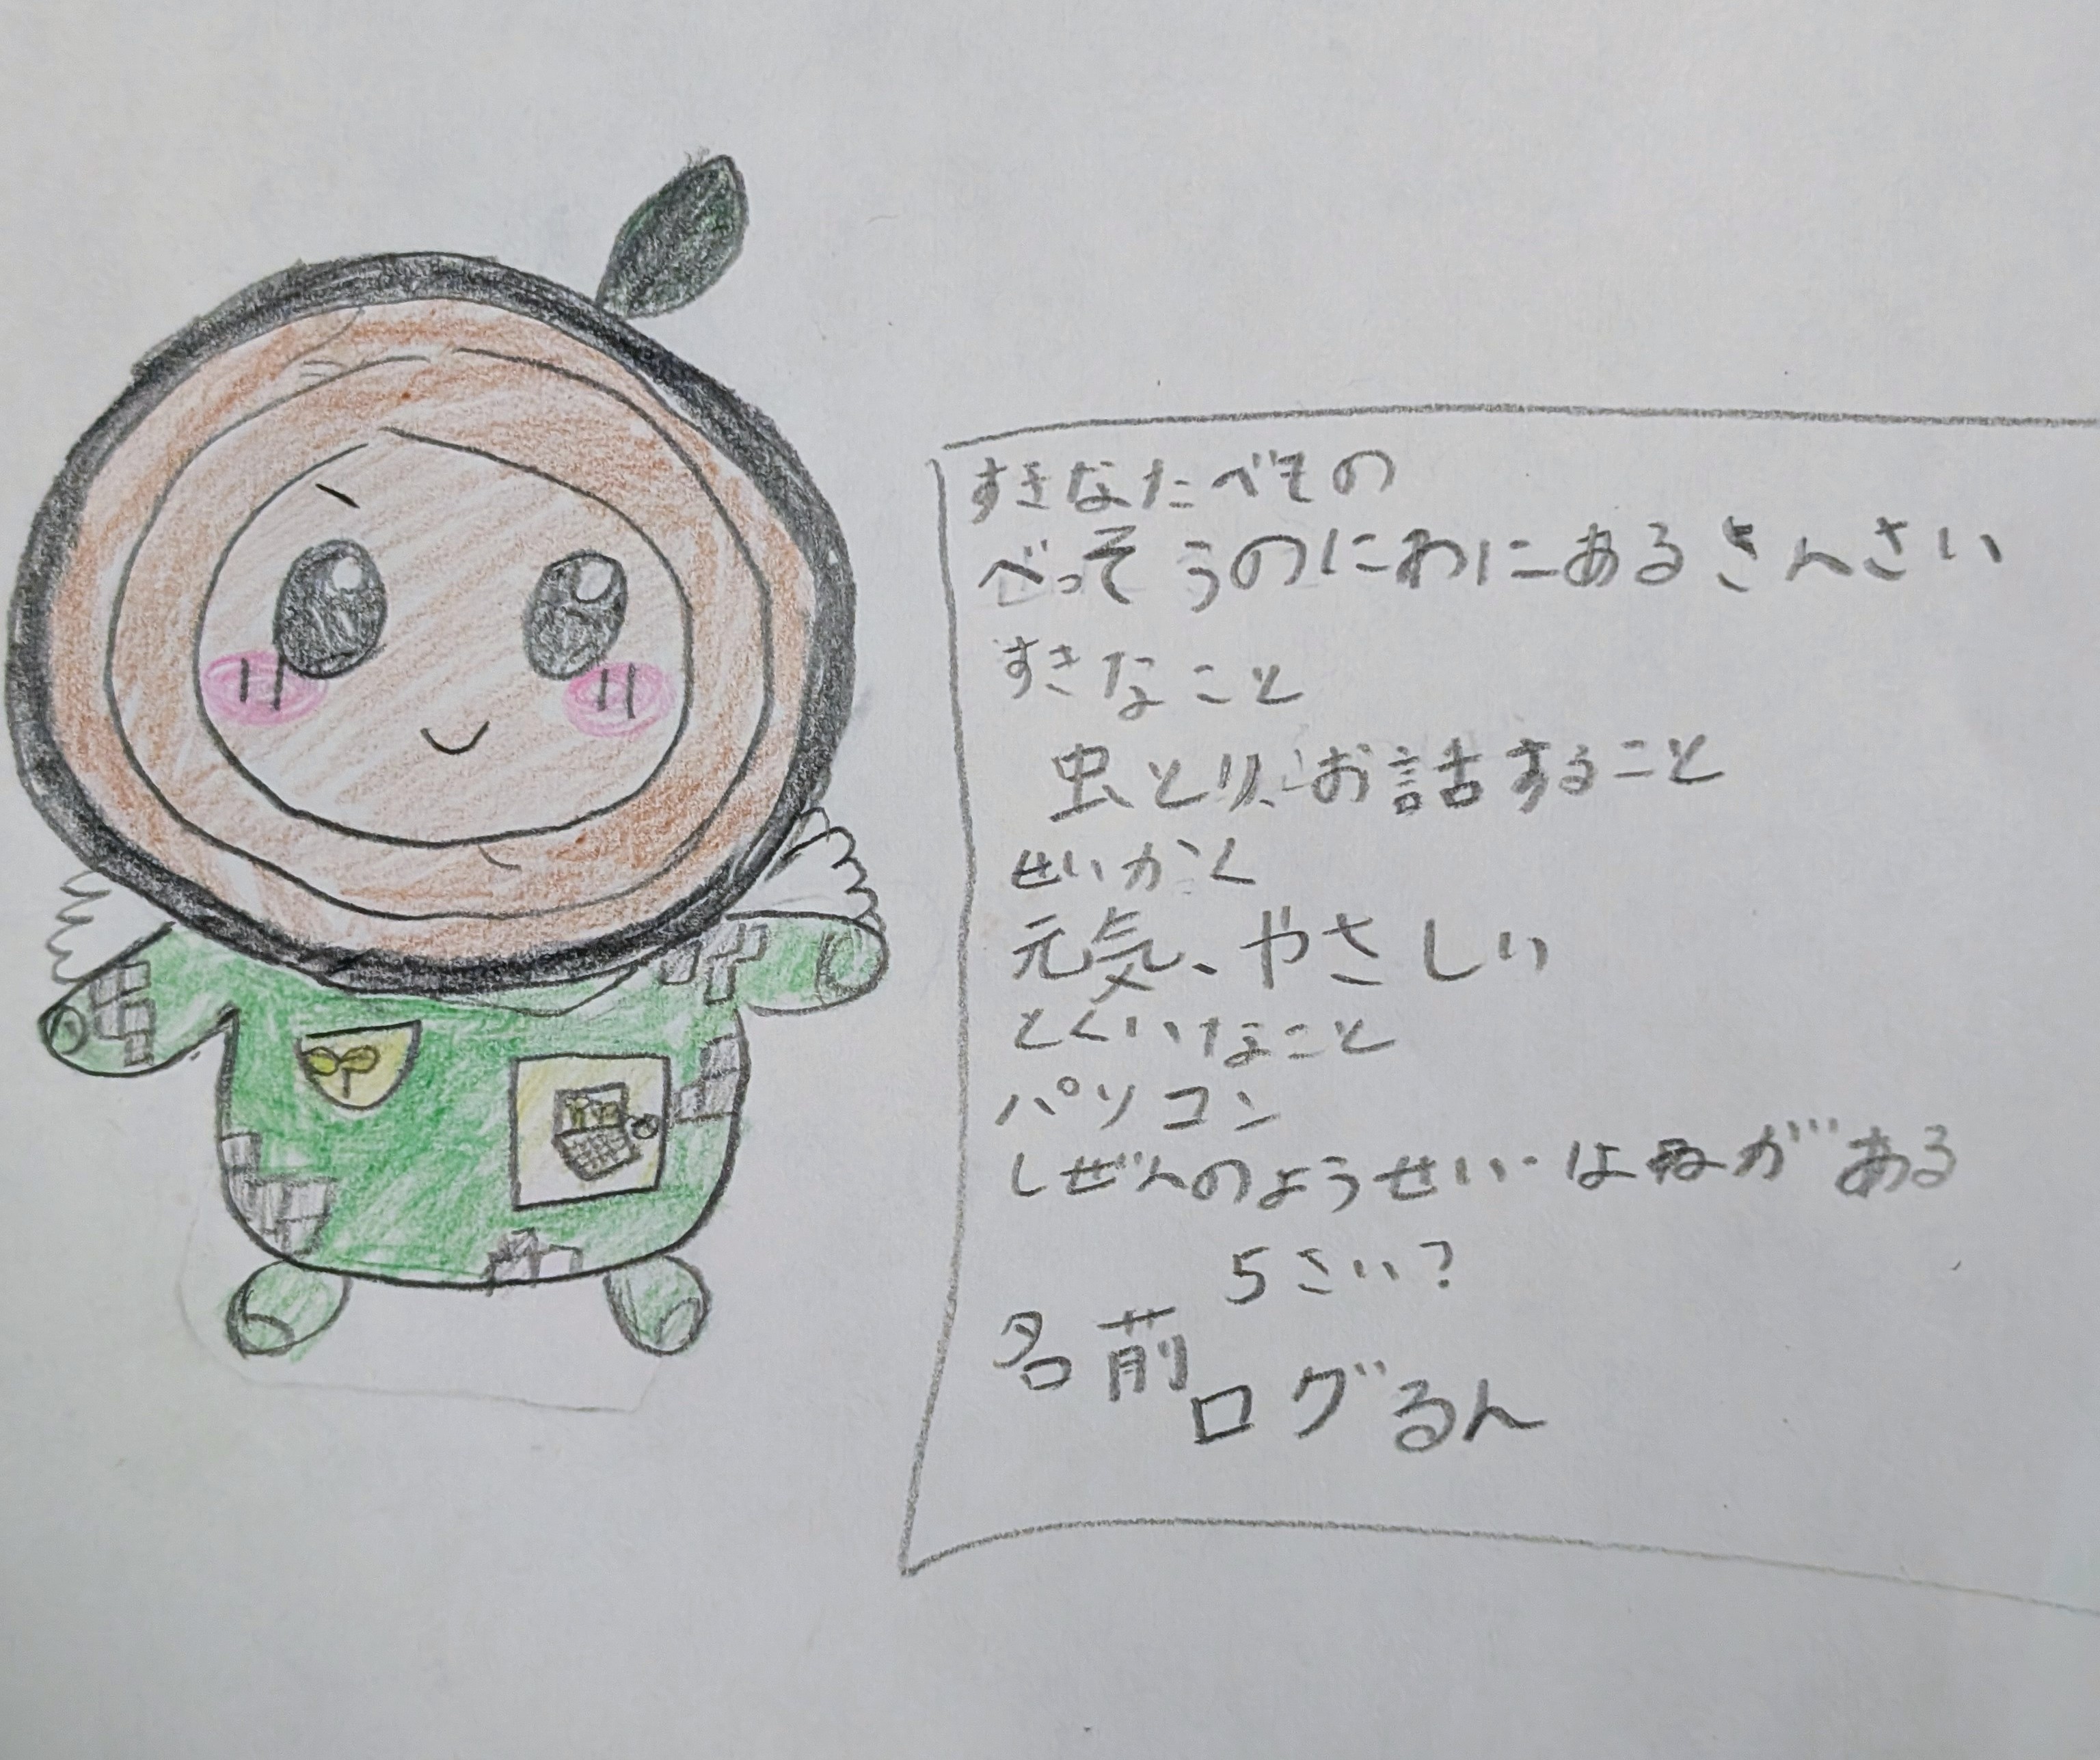 すきなたべもの
べっそうのにわにあるさんさい
すきなこと
虫とり、お話すること
せいかく
元気、やさしい
とくいなこと
パソコン
しぜんのようせい はねがある
5さい?
名前
ログるん